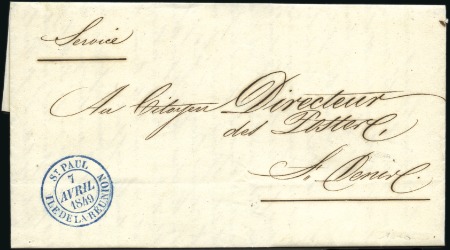 Service
Au Citoyen Directeur
des Postes,
St. Denis
ST PAUL
7
AVRIL
1849
ILE DE LA REUNION